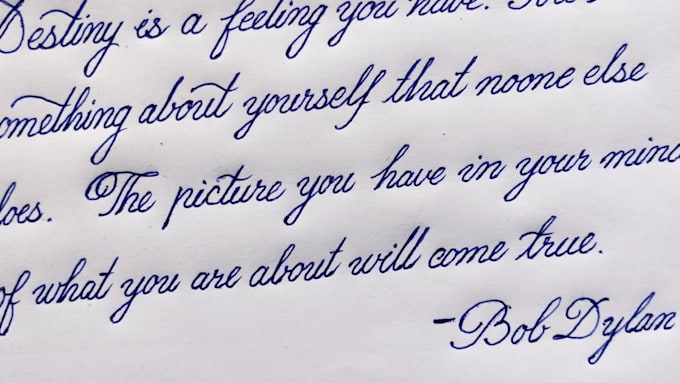 Destiny is a feeling you have.
omething about yourself that noone else
does. The picture you have in your mind
of what you are about will come true.
-Bob Dylan